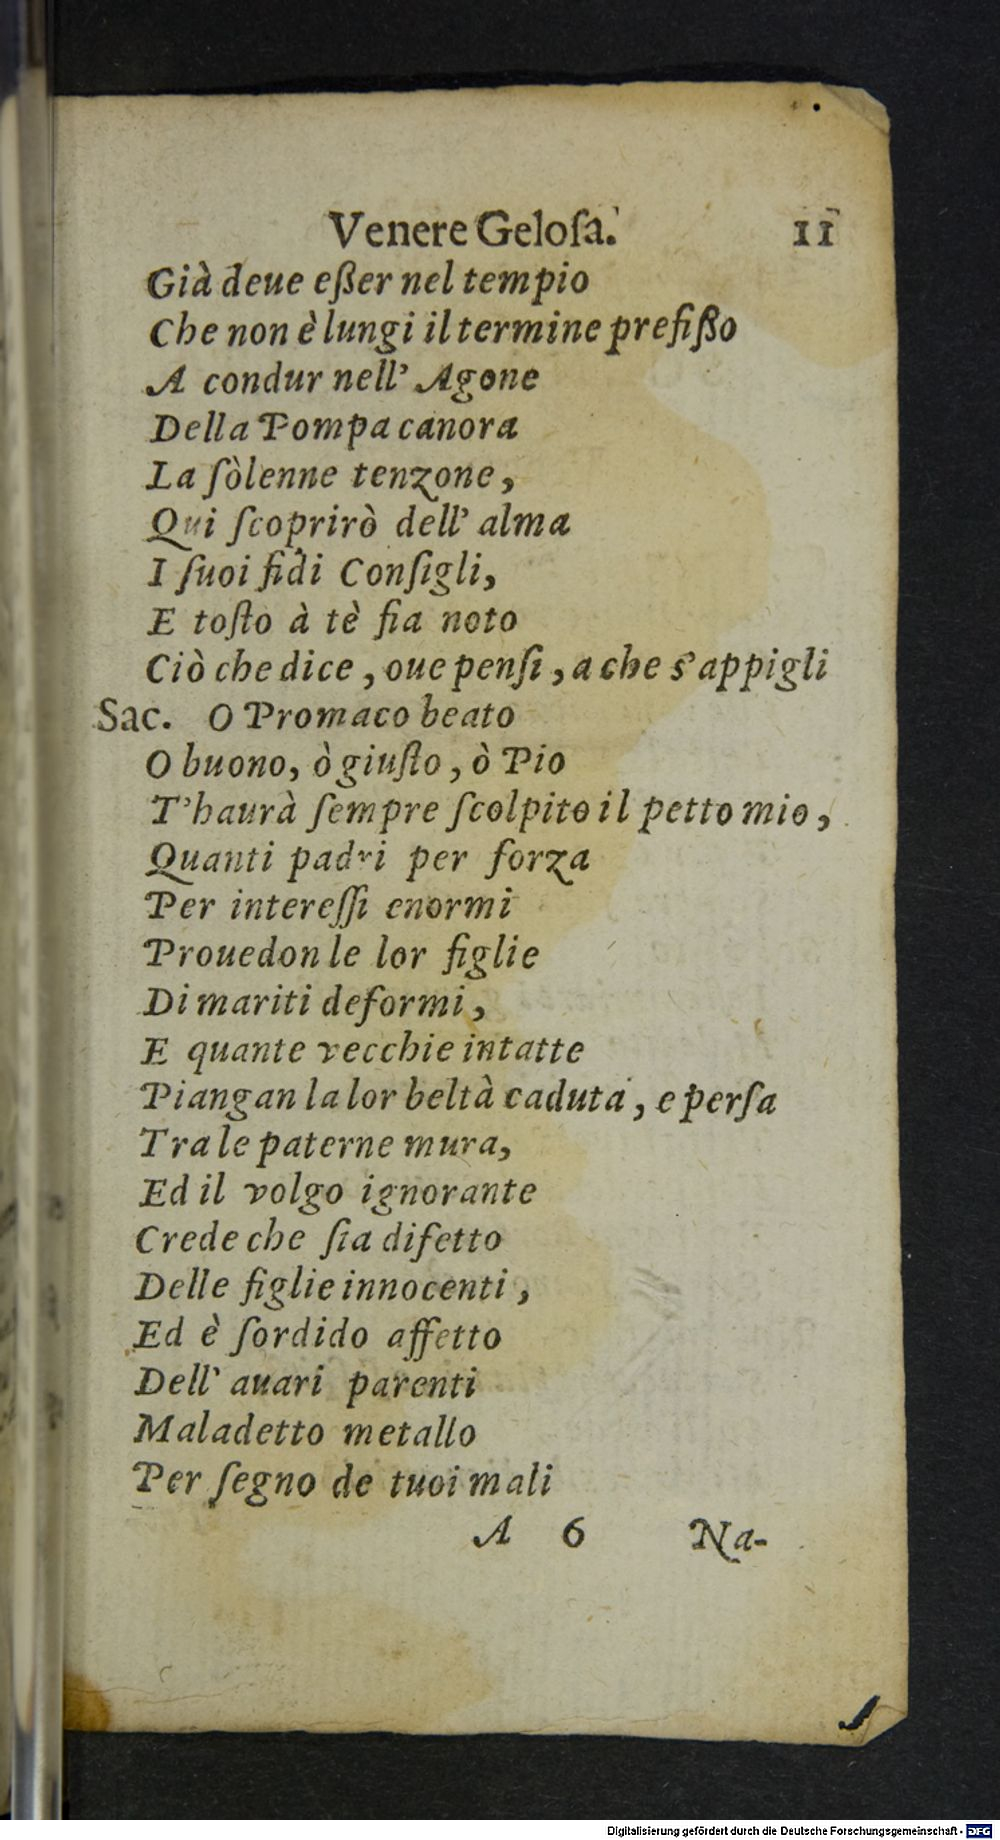 Venere Geloſa. 11
Già deue eßer nel tempio
Che non è lungi il termine prefißo
A condur nell' Agone
Della Pompa canora
La ſòlenne tenzone,
Qui ſcoprirò dell' alma
I ſuoi fidi Conſigli,
E toſto à tè fia noto
Ciò che dice, oue penſi, a che s'appigli
Sac. O Promaco beato
O buono, ò giuſto, ò Pio
T'haurà ſempre ſcolpito il petto mio,
Quanti padri per forza
Per intereſſi enormi
Prouedon le lor figlie
Di mariti deformi,
E quante vecchie intatte
Piangan la lor beltà caduta, e perſa
Tra le paterne mura,
Ed il volgo ignorante
Crede che ſia difetto
Delle figlie innocenti,
Ed è ſordido affetto
Dell' auari parenti
Maladetto metallo
Per ſegno de tuoi mali
A 6 Na-
Digitalisierung gefördert durch die Deutsche Forschungsgemeinschaft - DFG